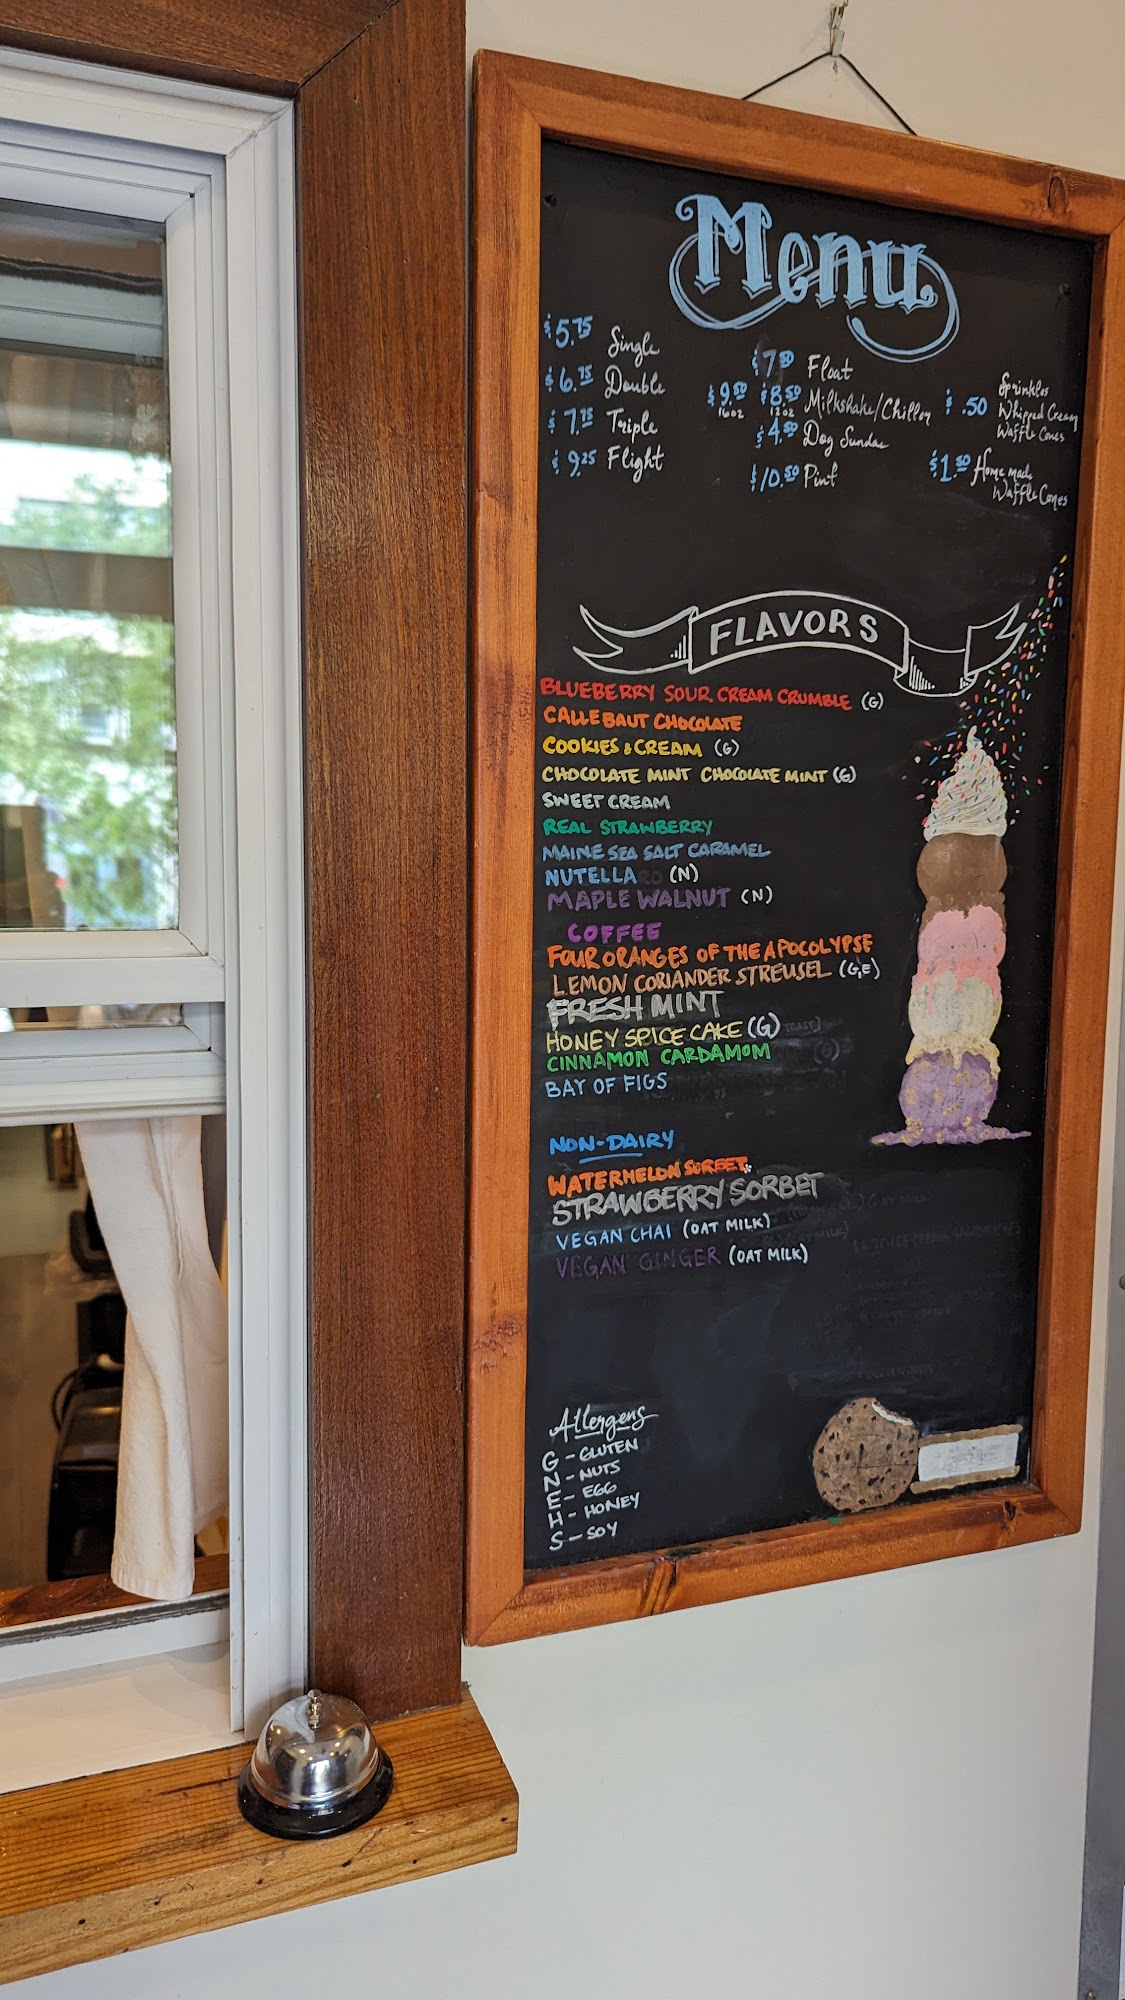 Menu
$5.75 Single
$6.75 Double
$7.75 Triple
$9.25 Flight
$7.50 Float
$9.50 16oz $8.50 12oz Milkshake/Chiller
$4.50 Dog Sundae
$10.50 Pint
$ .50 Sprinkles
Whipped Cream
Waffle Cones
$1.50 Homemade
Waffle Cones
FLAVORS
BLUEBERRY SOUR CREAM CRUMBLE (G)
CALLEBAUT CHOCOLATE
COOKIES & CREAM (G)
CHOCOLATE MINT CHOCOLATE MINT (G)
SWEET CREAM
REAL STRAWBERRY
MAINE SEA SALT CARAMEL
NUTELLA (N)
MAPLE WALNUT (N)
COFFEE
FOUR ORANGES OF THE APOCOLYPSE
LEMON CORIANDER STREUSEL (G,E)
FRESH MINT
HONEY SPICE CAKE (G)
CINNAMON CARDAMOM
BAY OF FIGS
NON-DAIRY
WATERMELON SORBET
STRAWBERRY SORBET
VEGAN CHAI (OAT MILK)
VEGAN GINGER (OAT MILK)
Allergens
G - GLUTEN
N - NUTS
E - EGG
H - HONEY
S - SOY